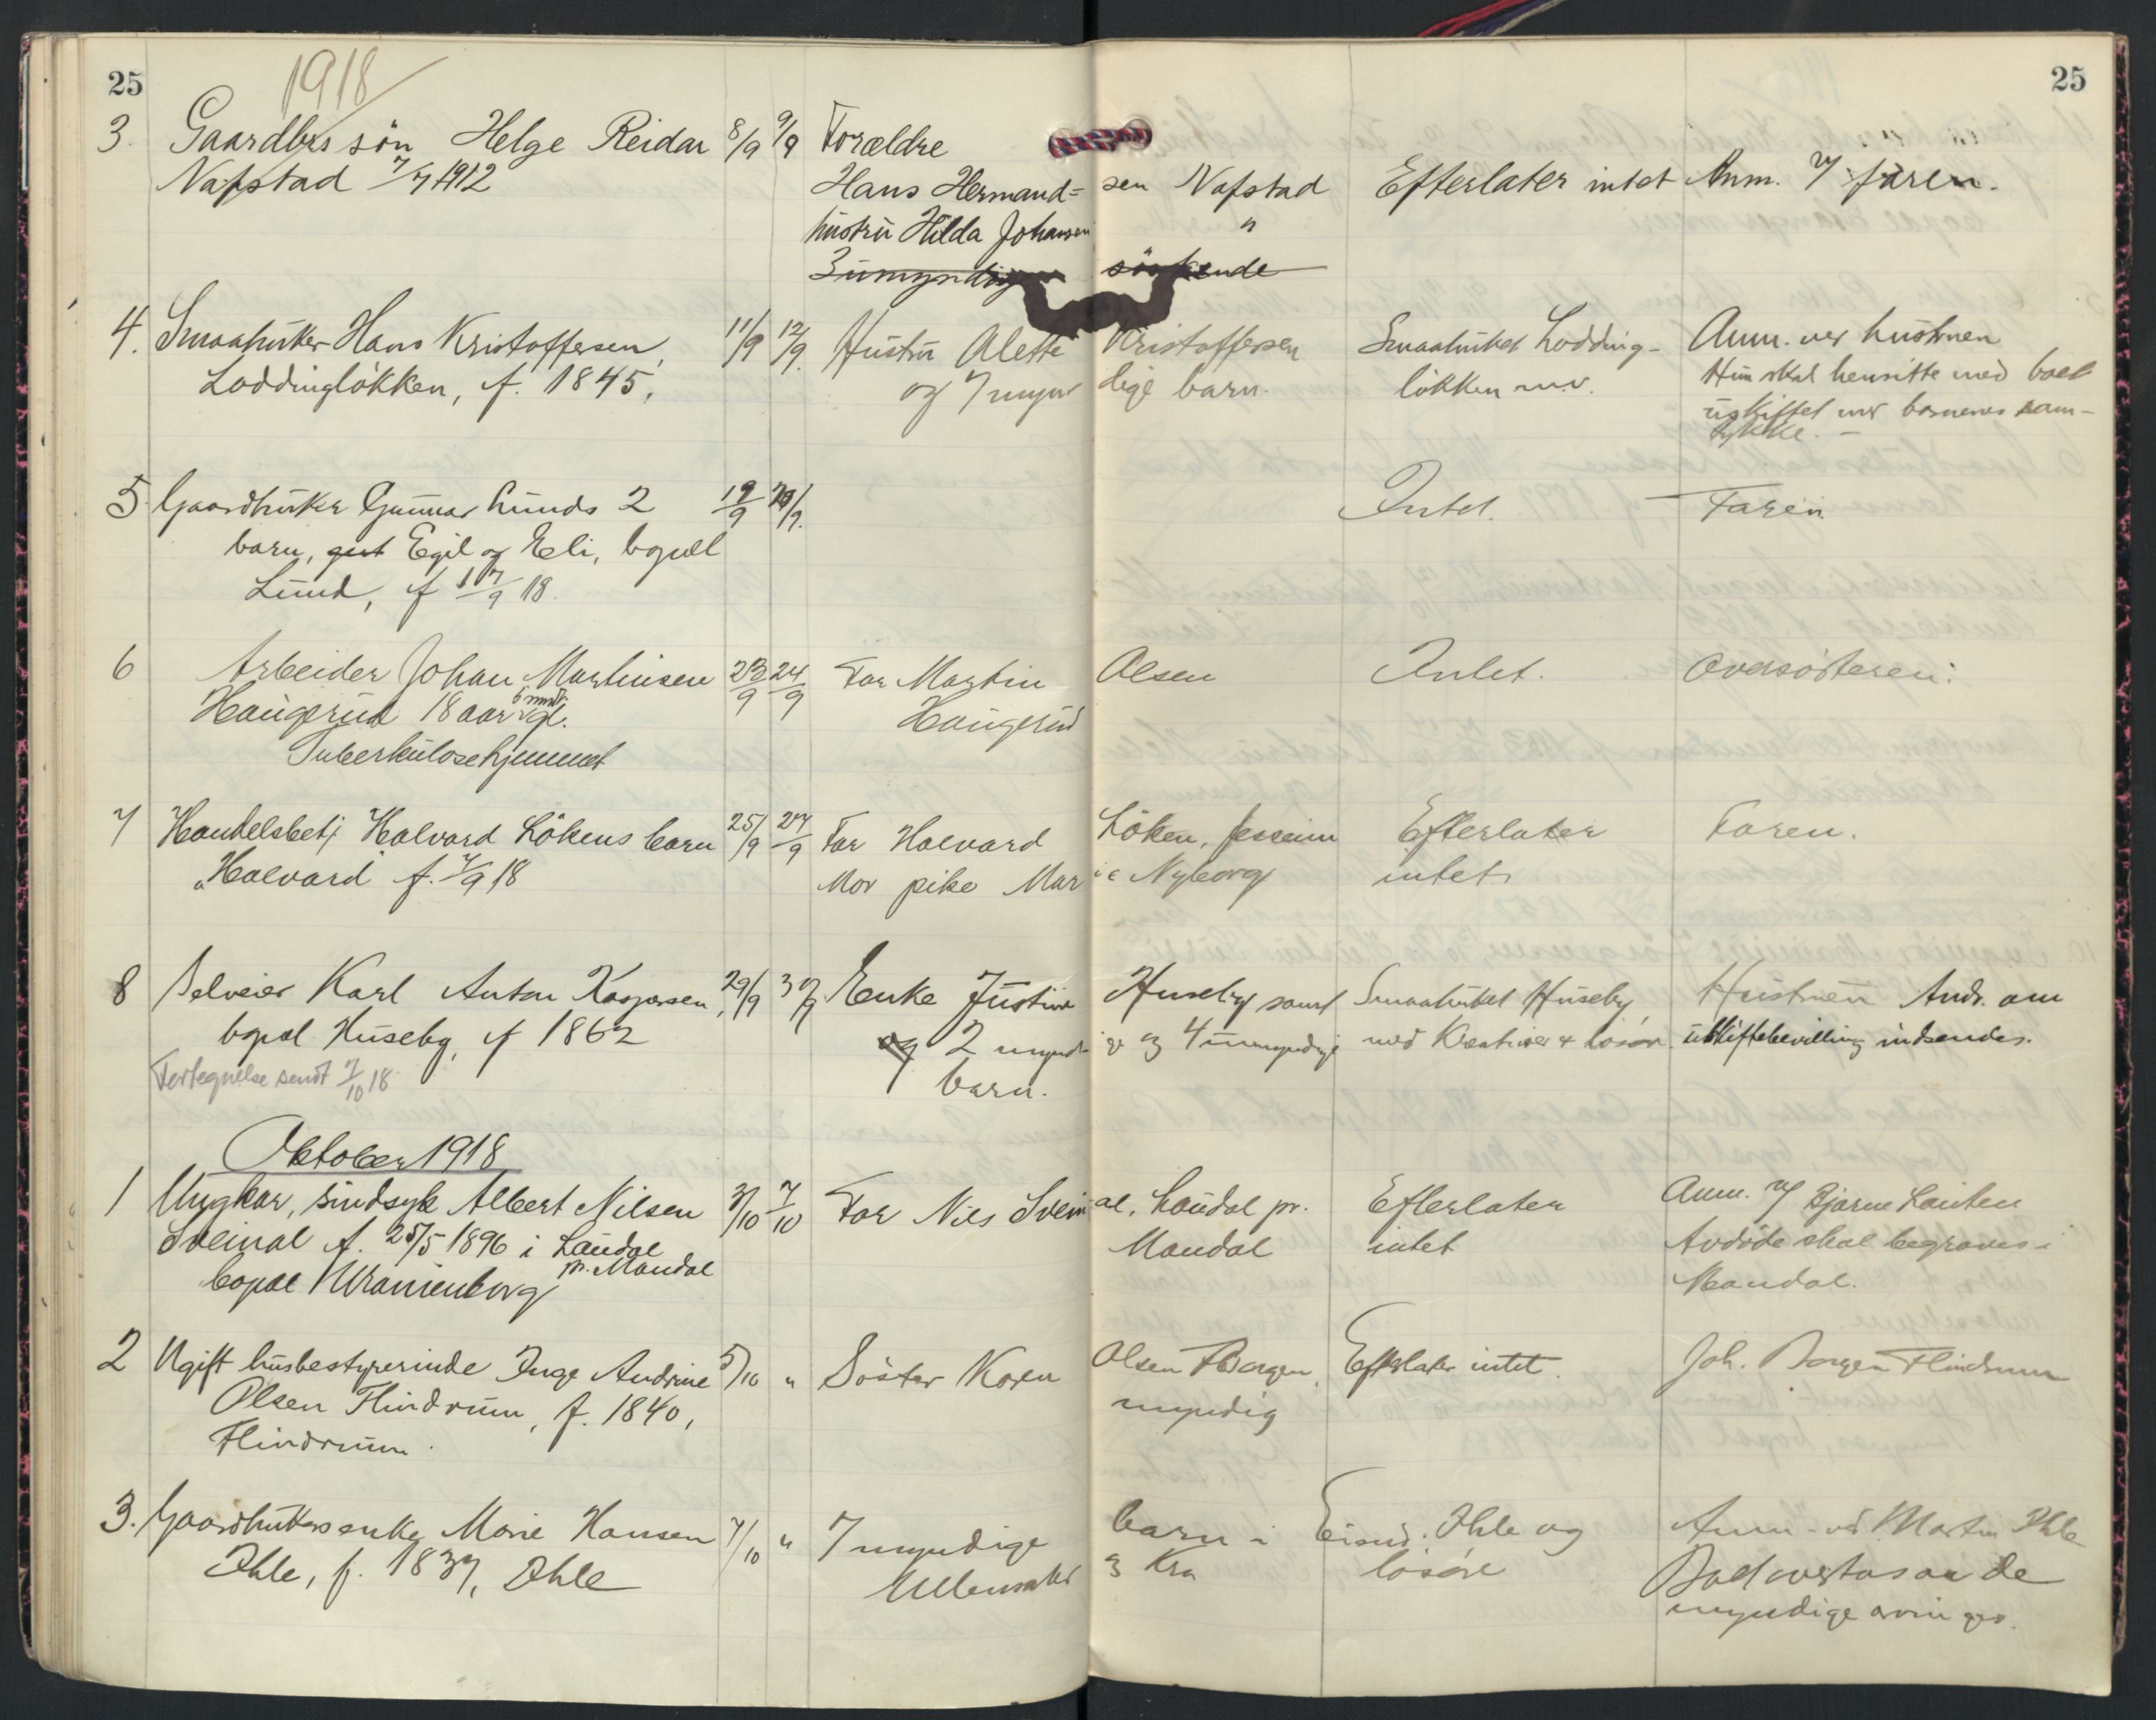 25
1918
25
3. Gaardbrs sön Helge Reidar 8/9 9/9 Forældre
Nafstad 7/7 1912 Hans Hermand= sen Nafstad Efterlater intet Anm. af faren.
hustru Hilda Johansen "
3 umyndige söskende
4. Smaabruker Hans Kristoffersen, 11/9 12/9. Hustru Alette Kristoffersen Smaabruket Lodding- Anm. ved hustruen
Loddinglökken, f. 1845, og 7 myn dige barn. lökken m.v. Hun skal hensitte med boet
uskiftet med barnenes sam-
tykke. -
5. Gaardbruker Gunnar Lunds 2 19/9 20/9. Intet. Faren
barn, gut Egil og Eli, bopæl
Lund, f 17/9 18.
6 Arbeider Johan Martinsen 23/9 24/9 Far Martin Olsen Intet. Oversösteren:
Haugerud 18 aar 6 mndr. gl. Haugerud
Tuberkulosehjemmet
7 Handelsbetj Halvard Lökens barn 25/9 27/9 Far Halvard Löken, Jesseim Efterlater Faren.
"Halvard" f. 7/9 18 Mor pike Mar ie Nyborg intet
8 Selveier Karl Anton Kaspersen, 29/9 30/9 Enke Justine Huseby samt Smaabruket Huseby Hustruen Andr. om
bopæl Huseby, f 1862 og 2 myndi ge og 4 umyndige med Kreaturer & lösöre. uskiftebevilling indsendes.
Fortegnelse sendt 7/10 18 barn.
Oktober 1918
1 Ungkar, sindsyk Albert Nilsen 3/10 7/10 Far Nils Svein al, Laudal pr. Efterlater Anm. af Bjarne Lauten
Sveinal f. 25/5 1896 i Laudal Mandal intet Avdöde skal begraves i
pr. Mandal
bopæl Uranienborg Mandal.
2 Ugift husbestyrerinde Inge Andrine 5/10 " Söster Karen Olsen Borgen, Efterlater intet. Joh. Borgen Flindrum
Olsen Flindrum, f. 1840, myndig
Flindrum.
3. Gaardbrukersenke Marie Hansen 7/10 " 7 myndige barn i Eiend. Ihle og Anm. ved Martin Ihle
Ihle, f. 1837, Ihle Ullensaker og Kra lösöre Boet overtas av de
myndige arvinger.